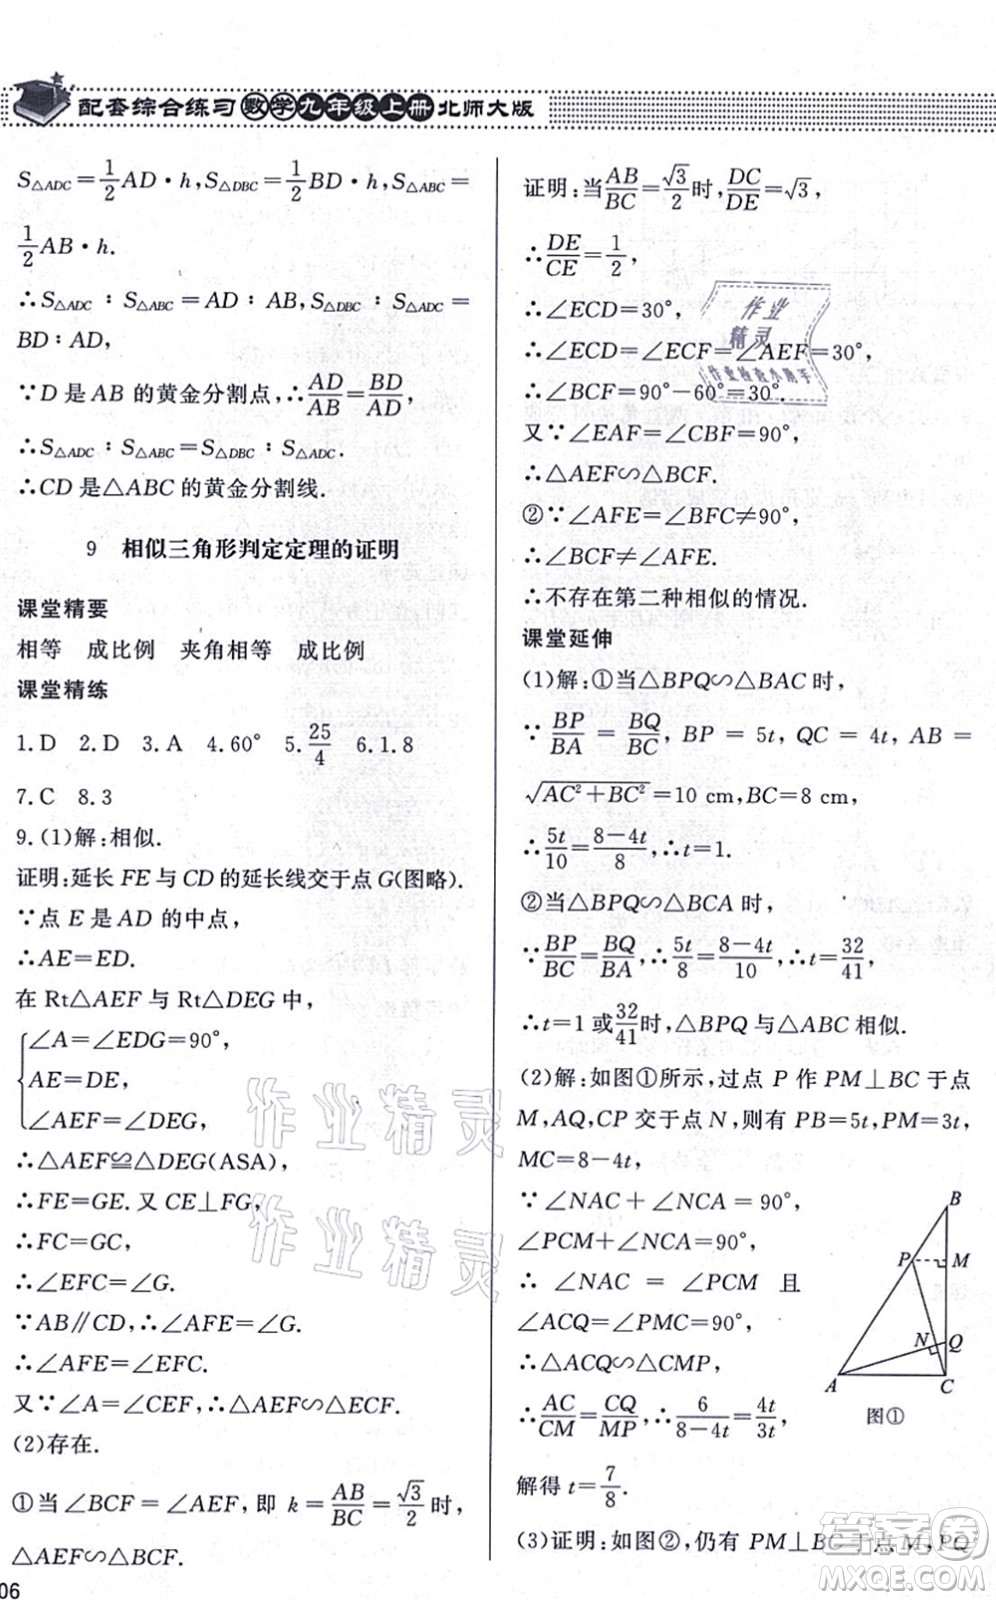 配套综合练习 数学九年级上册 北师大版
S△ADC=1/2AD·h,S△DBC=1/2BD·h,S△ABC=
1/2AB·h.
∴S△ADC∶S△ABC=AD∶AB,S△DBC∶S△ADC=
BD∶AD,
∵D是AB的黄金分割点,∴AD/AB=BD/AD,
∴S△ADC∶S△ABC=S△DBC∶S△ADC.
∴CD是△ABC的黄金分割线.
9 相似三角形判定定理的证明
课堂精要
相等 成比例 夹角相等 成比例
课堂精练
1.D 2.D 3.A 4.60° 5.25/4 6.1.8
7.C 8.3
9.(1)解:相似.
证明:延长FE与CD的延长线交于点G(图略).
∵点E是AD的中点,
∴AE=ED.
在Rt△AEF与Rt△DEG中,
∠A=∠EDG=90°,
AE=DE,
∠AEF=∠DEG,
∴△AEF≌△DEG(ASA),
∴FE=GE.又CE⊥FG,
∴FC=GC,
∴∠EFC=∠G.
∵AB∥CD,∴∠AFE=∠G.
∴∠AFE=∠EFC.
又∵∠A=∠CEF,∴△AEF∽△ECF.
(2)存在.
①当∠BCF=∠AEF,即k=AB/BC=√3/2时,
△AEF∽△BCF.
06
证明:当AB/BC=√3/2时,DC/DE=√3,
∴DE/CE=1/2,
∴∠ECD=30°,
∴∠ECD=∠ECF=∠AEF=30°,
∴∠BCF=90°-60°=30°.
又∵∠EAF=∠CBF=90°,
∴△AEF∽△BCF.
②∵∠AFE=∠BFC≠90°,
∴∠BCF≠∠AEF.
∴不存在第二种相似的情况.
课堂延伸
(1)解:①当△BPQ∽△BAC时,
∵BP/BA=BQ/BC,BP=5t,QC=4t,AB=
√AC²+BC²=10 cm,BC=8 cm,
∴5t/10=(8-4t)/8,∴t=1.
②当△BPQ∽△BCA时,
∵BP/BC=BQ/BA,∴5t/8=(8-4t)/10,∴t=32/41,
∴t=1或32/41时,△BPQ与△ABC相似.
(2)解:如图①所示,过点P作PM⊥BC于点
M,AQ,CP交于点N,则有PB=5t,PM=3t,
MC=8-4t,
∵∠NAC+∠NCA=90°,
∠PCM+∠NCA=90°,
∴∠NAC=∠PCM且
∠ACQ=∠PMC=90°,
∴△ACQ∽△CMP,
∴AC/CM=CQ/MP,∴6/(8-4t)=4t/3t,
解得t=7/8.
B
P
M
N
Q
A
C
图①
(3)证明:如图②,仍有PM⊥BC于点M,PQ
作业
精灵
作业检查小助手
作业精灵
作业精灵
答案圈
MXQE.COM